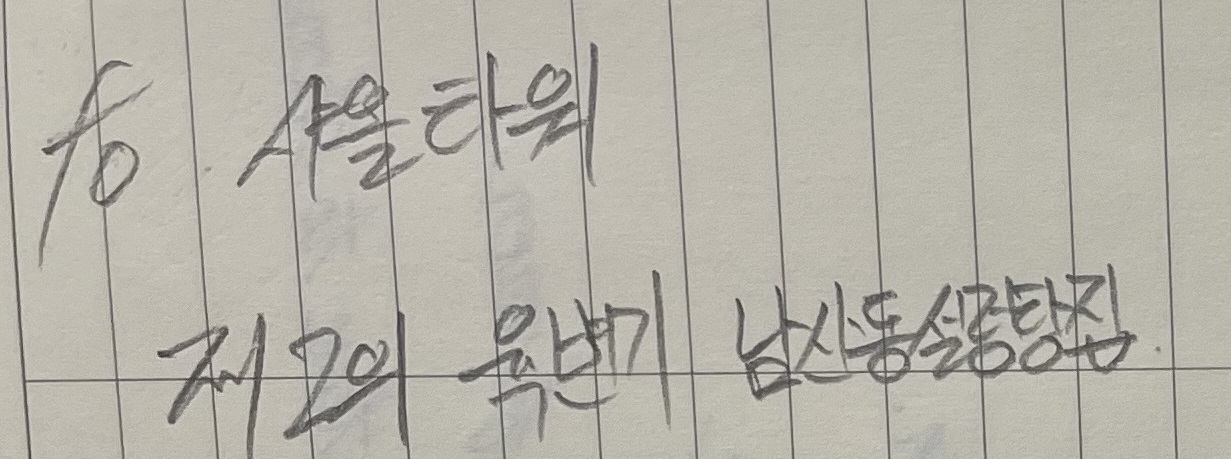 fo. 샤울타워
제2의 욱반기 남산동설렁탕집.